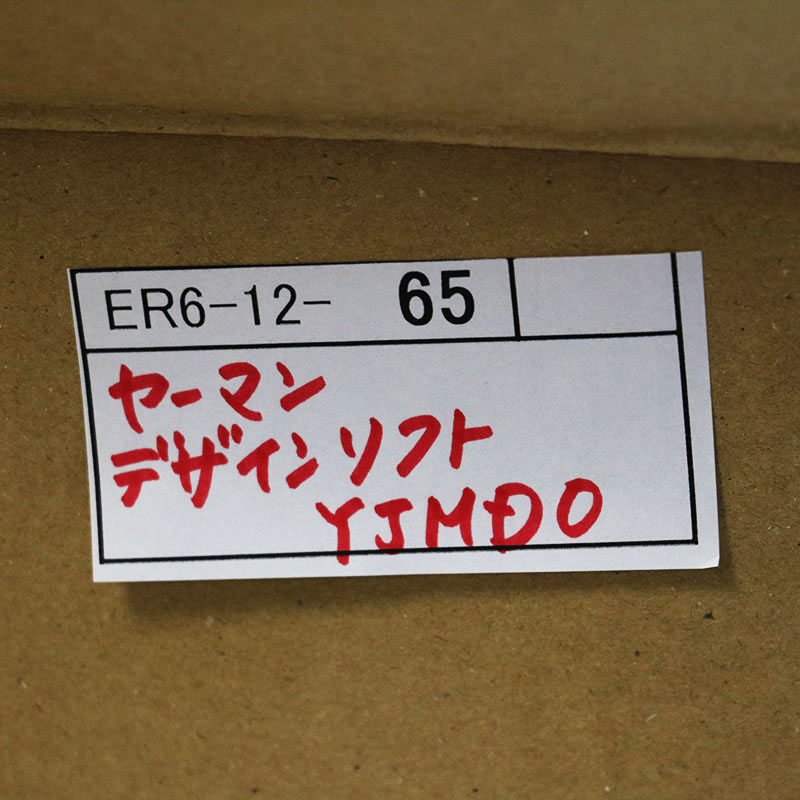 ER6-12- 65
ヤーマン
デザインソフト
YJMD0